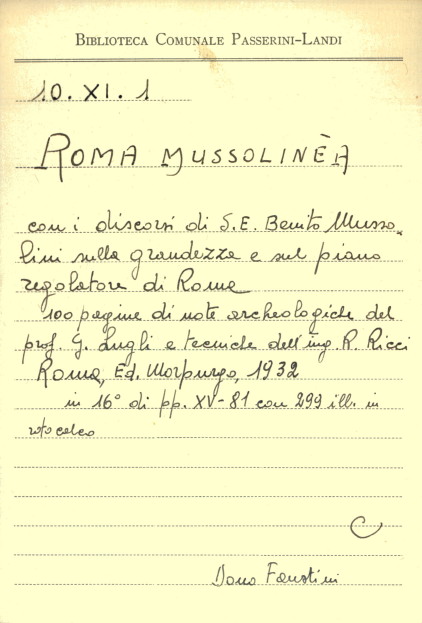 BIBLIOTECA COMUNALE PASSERINI-LANDI
10. XI. 1
ROMA MUSSOLINÈA
con i discorsi di S.E. Benito Musso-
lini sulla grandezza e sul piano
regolatore di Roma
100 pagine di note archeologiche del
prof. G. Lugli e tecniche dell'ing. R. Ricci
Roma, Ed. Morpurgo, 1932
in 16° di pp. XV-81 con 299 ill. in
rotocalco
C
Dono Faustini